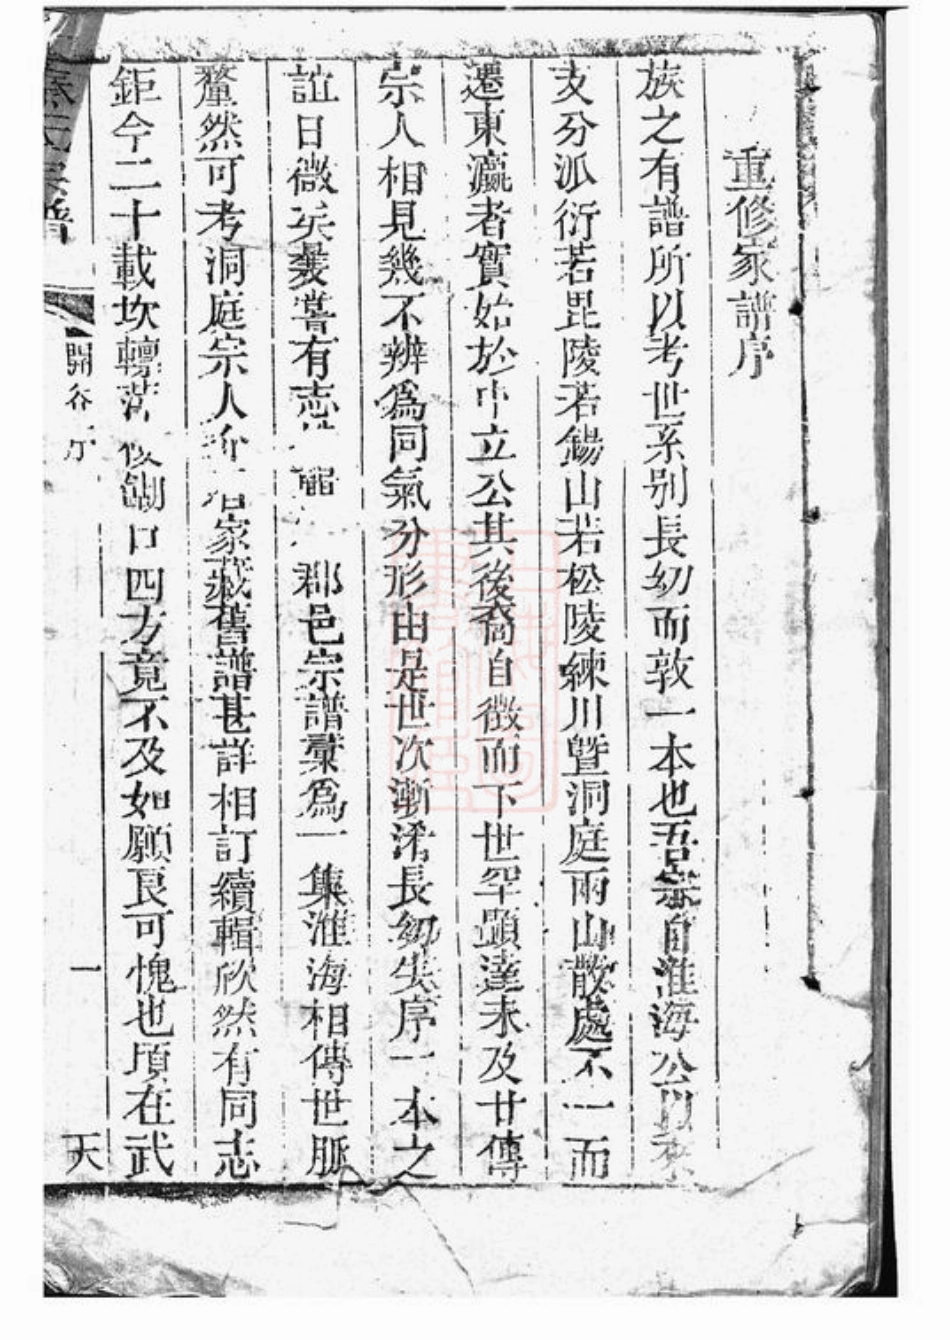 重修家譜序
族之有譜所以考世系別長幼而敦一本也吾宗自淮海公以來
支分派衍若毘陵若錫山若松陵練川曁洞庭兩山散處不一而
遷東瀛者實始於中立公其後裔自微而下世罕顯達未及廿傳
宗人相見幾不辨爲同氣分形由是世次漸淆長幼失序一本之
誼日微矣曩嘗有志 郡邑宗譜彙爲一集淮海相傳世脈
釐然可考洞庭宗人 家藏舊譜甚詳相訂續輯欣然有同志
鉅今二十載坎轗 餬口四方竟不及如願良可愧也頃在武
秦氏宗譜
序
一
天